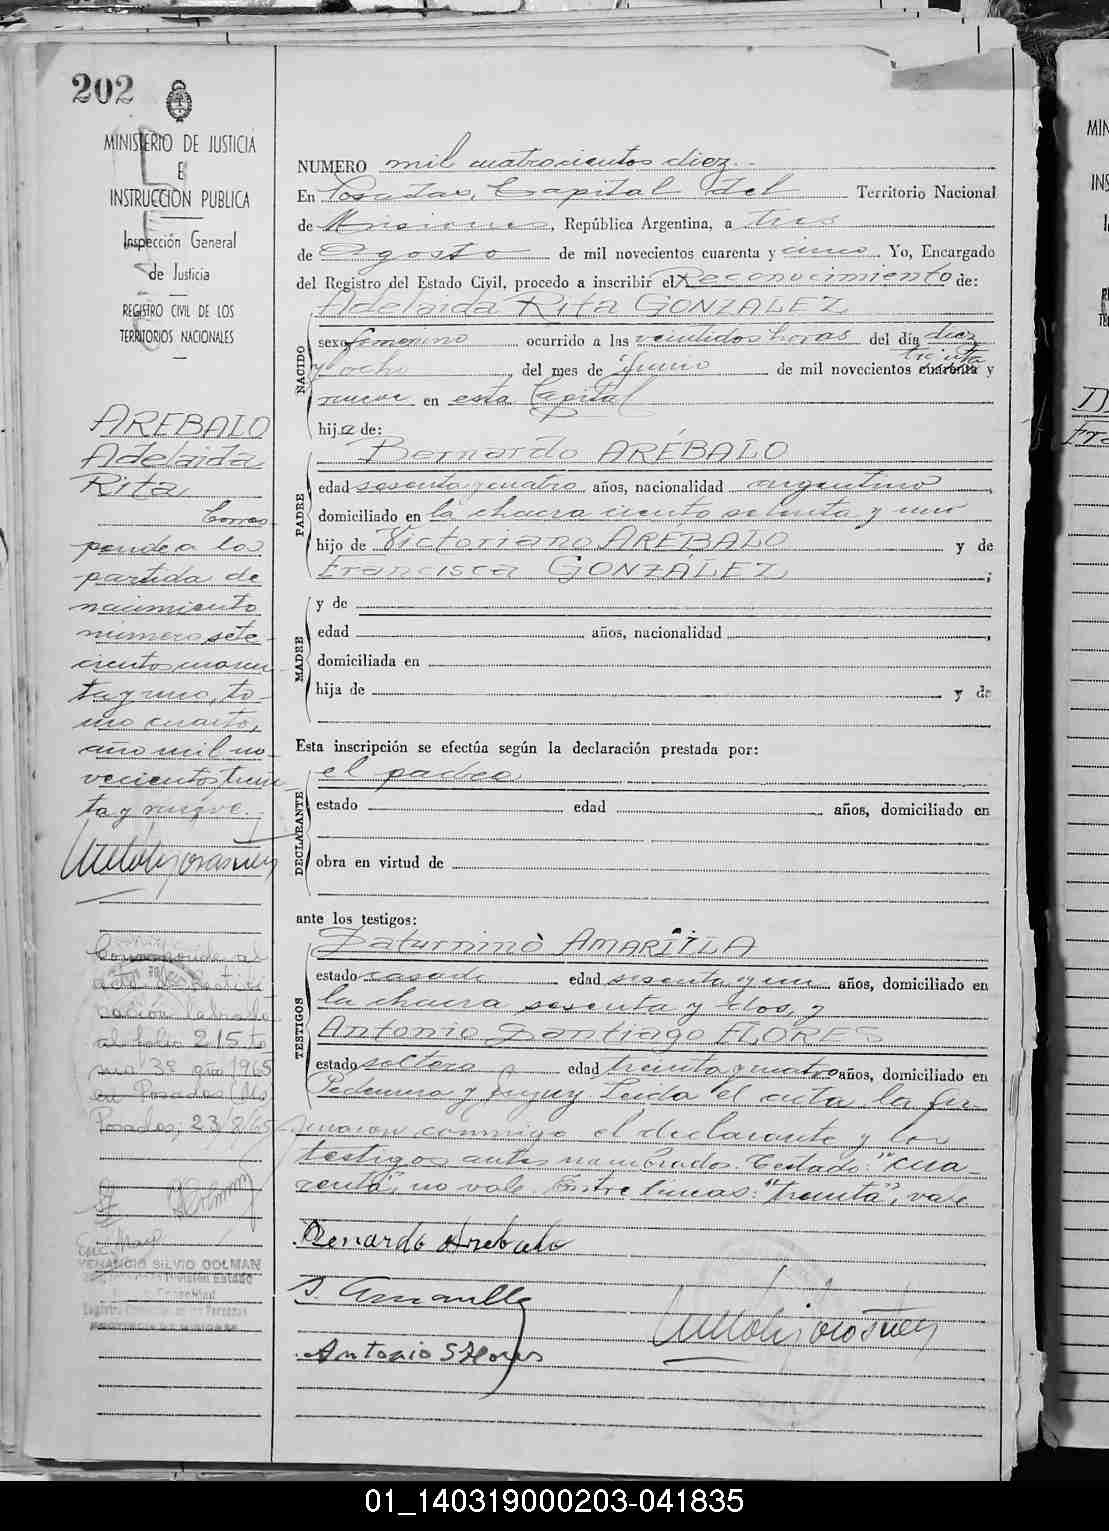 202
MINISTERIO DE JUSTICIA
E
INSTRUCCION PUBLICA
Inspección General
de Justicia
REGISTRO CIVIL DE LOS
TERRITORIOS NACIONALES
AREBALO
Adelaida
Rita
Corres-
ponde a la
partida de
nacimiento
número sete-
cientos cuaren-
ta y uno, to-
mo cuarto,
año mil no-
vecientos trein-
ta y nueve.
Corresponde al
acta de Rectifi
cación labrada
al folio 215 to
mo 3º año 1965
en Posadas (Mo)
Posadas, 23/8/65
VENANCIO SILVIO DOLMAN
División Estado
PROVINCIA DE MISIONES
NUMERO mil cuatrocientos diez.-
En Posadas, Capital del Territorio Nacional
de Misiones, República Argentina, a tres
de Agosto de mil novecientos cuarenta y cinco. Yo, Encargado
del Registro del Estado Civil, procedo a inscribir el Reconocimiento de:
Adelaida Rita GONZALEZ
NACIDO
sexo femenino ocurrido a las veintidos horas del día diez
treinta
y ocho del mes de Junio de mil novecientos cuarenta y
nueve en esta Capital
hija de:
Bernardo ARÉBALO
PADRE
edad sesenta y cuatro años, nacionalidad argentino,
domiciliado en la chacra ciento setenta y uno
hijo de Victoriano ARÉBALO y de
Francisca GONZÁLEZ;
MADRE
y de
edad años, nacionalidad,
domiciliada en
hija de y de
Esta inscripción se efectúa según la declaración prestada por:
el padre
DECLARANTE
estado edad años, domiciliado en
obra en virtud de
ante los testigos:
Saturnino AMARILLA
TESTIGOS
estado casado edad sesenta y un años, domiciliado en
la chacra sesenta y dos, y
Antonio Santiago FLORES
estado soltero edad treinta y cuatro años, domiciliado en
Pedernera y Jujuy. Leída el acta la fir-
maron conmigo el declarante y los
testigos antes nombrados. Testado: "cua-
renta", no vale. Entre lineas: "treinta", vale
Benardo Arebalo
S. Amarilla
Antonio S Flores
01_140319000203-041835